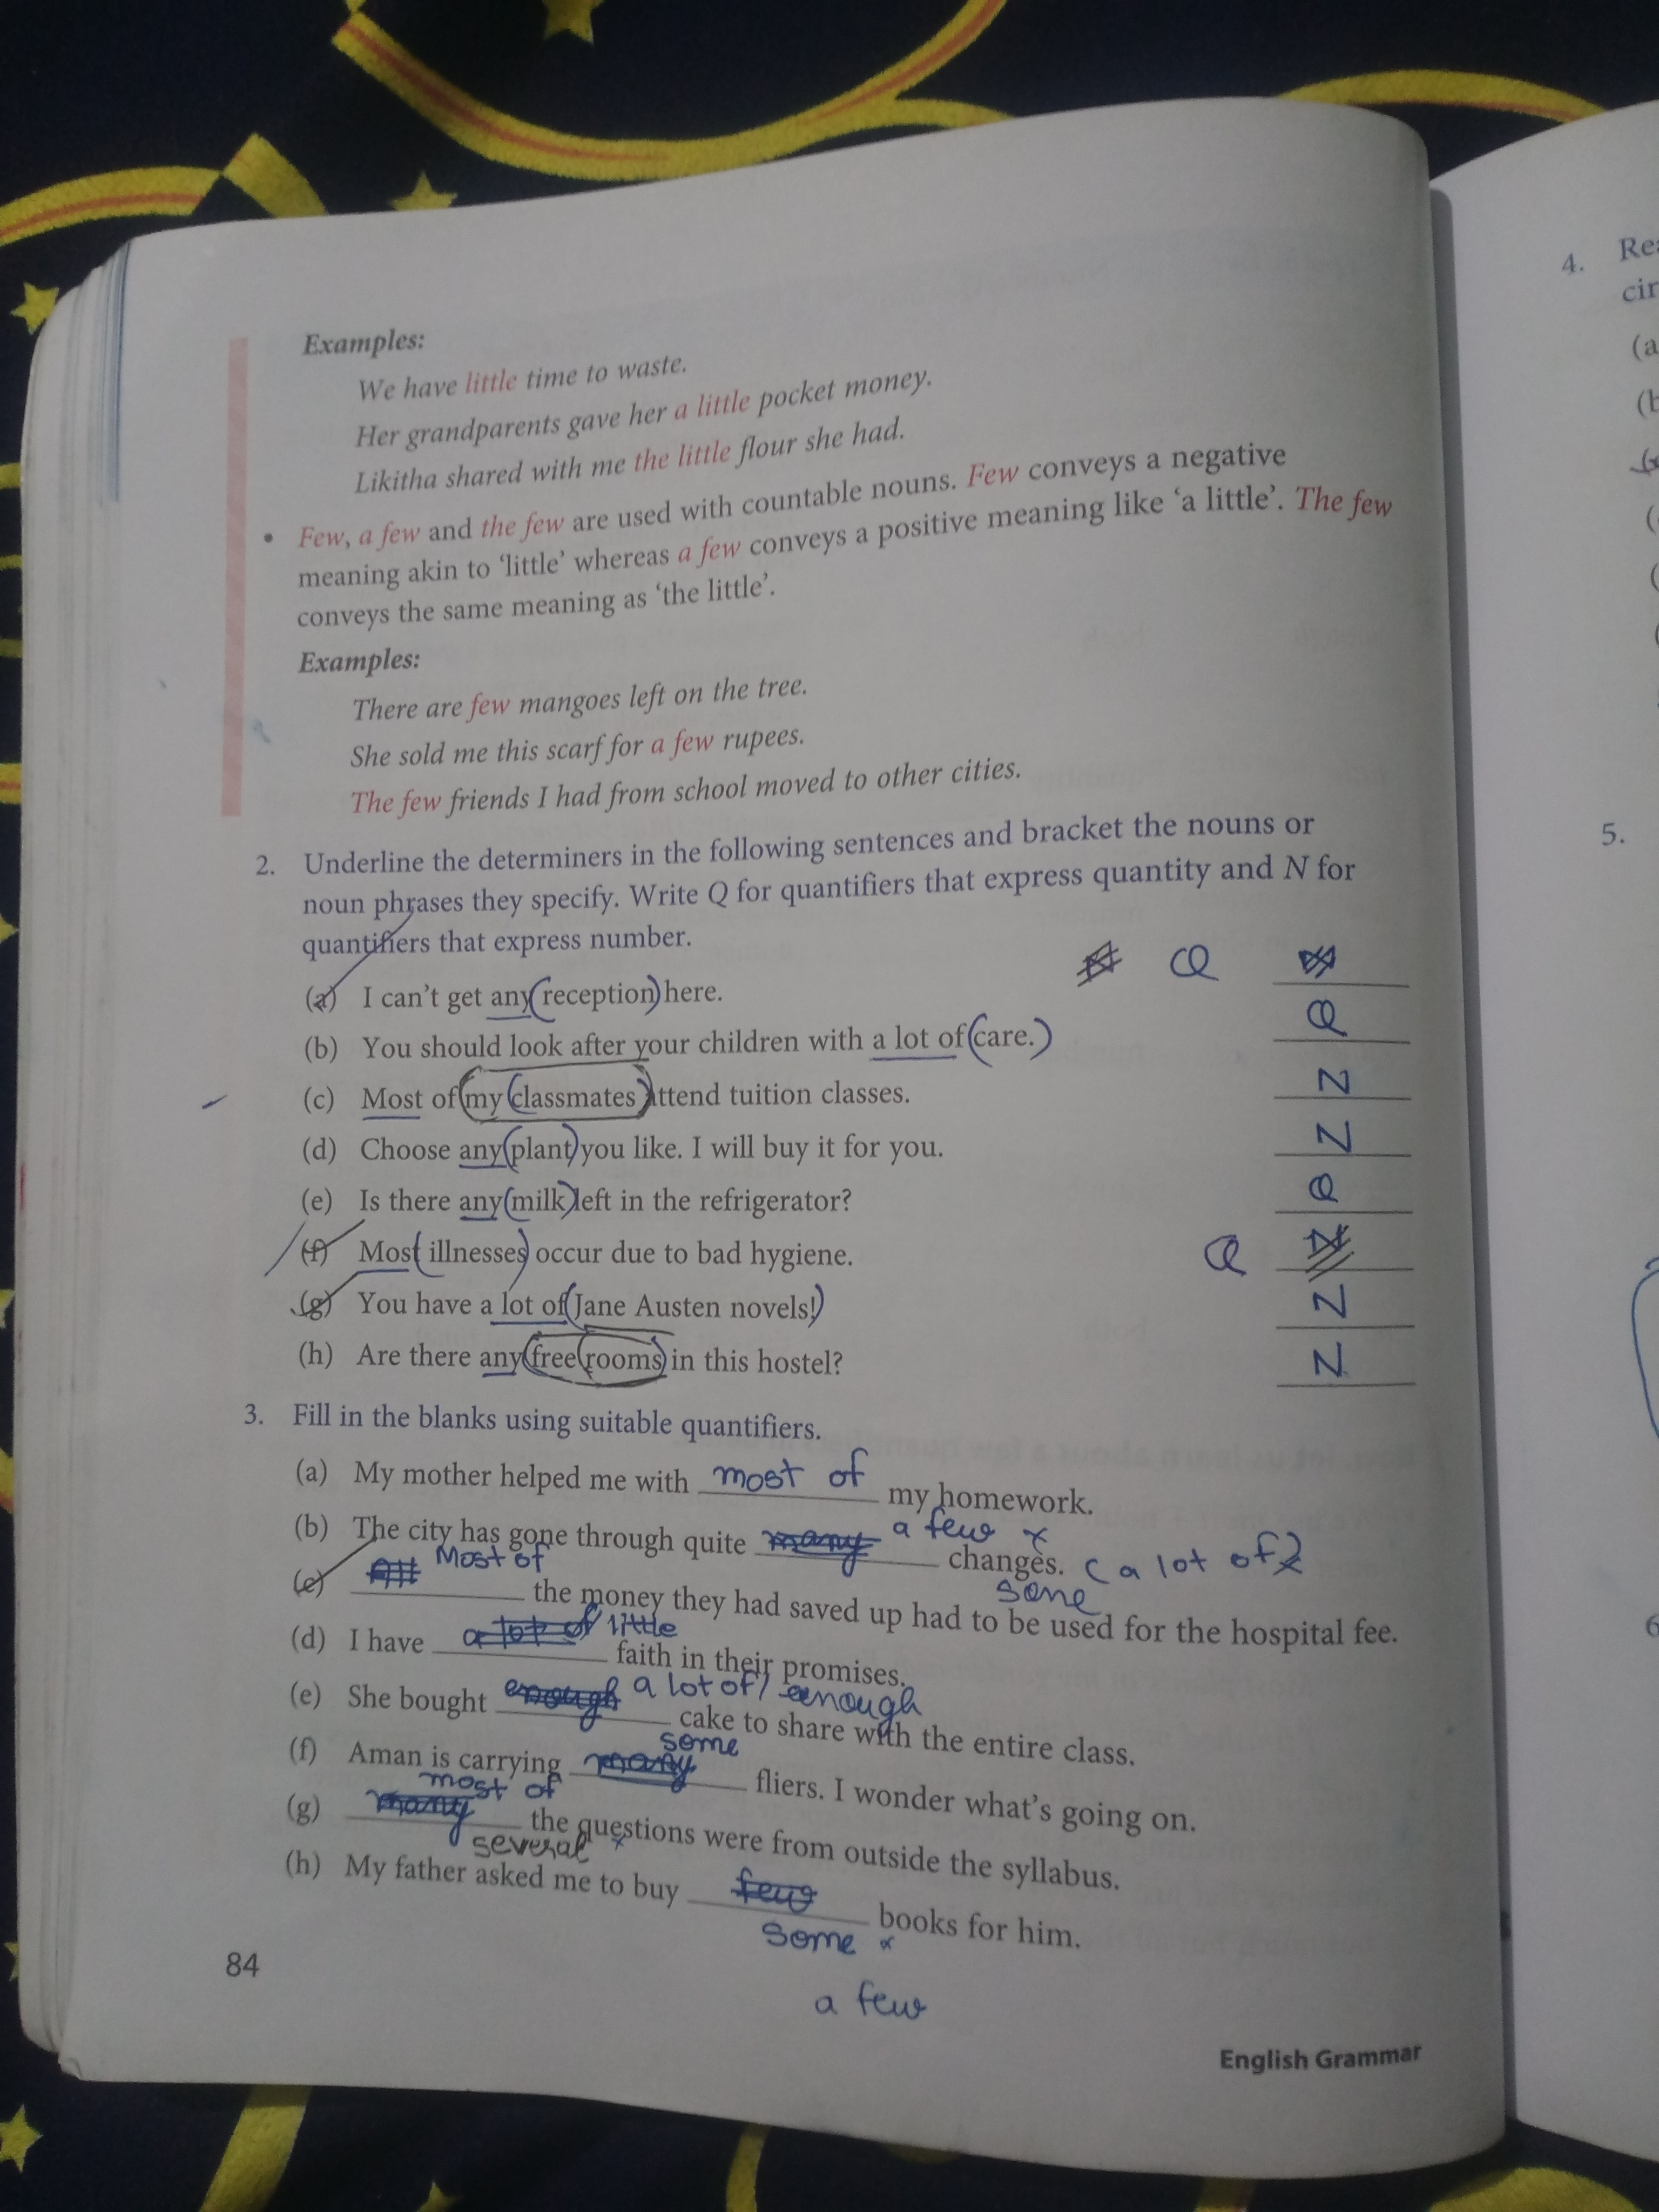 Examples:
We have little time to waste.
Her grandparents gave her a little pocket money.
Likitha shared with me the little flour she had.
• Few, a few and the few are used with countable nouns. Few conveys a negative
meaning akin to ‘little’ whereas a few conveys a positive meaning like ‘a little’. The few
conveys the same meaning as ‘the little’.
Examples:
There are few mangoes left on the tree.
She sold me this scarf for a few rupees.
The few friends I had from school moved to other cities.
2. Underline the determiners in the following sentences and bracket the nouns or
noun phrases they specify. Write Q for quantifiers that express quantity and N for
quantifiers that express number.
(a) I can't get any (reception) here. Q
(b) You should look after your children with a lot of (care.) Q
(c) Most of (my (classmates) attend tuition classes. N
(d) Choose any (plant) you like. I will buy it for you. N
(e) Is there any (milk) left in the refrigerator? Q
(f) Most (illnesses) occur due to bad hygiene. Q
(g) You have a lot of (Jane Austen novels!) N
(h) Are there any (free (rooms) in this hostel? N
3. Fill in the blanks using suitable quantifiers.
(a) My mother helped me with most of my homework.
(b) The city has gone through quite many a few x changes. (a lot of)
(c) All Most of the money they had saved up had to be used for the hospital fee.
some
(d) I have a lot of little faith in their promises.
(e) She bought enough a lot of / enough cake to share with the entire class.
(f) Aman is carrying many some fliers. I wonder what's going on.
(g) many most of the questions were from outside the syllabus.
several x
(h) My father asked me to buy few books for him.
some x
a few
84
English Grammar
4. Re
cir
(a
(b
5.
6